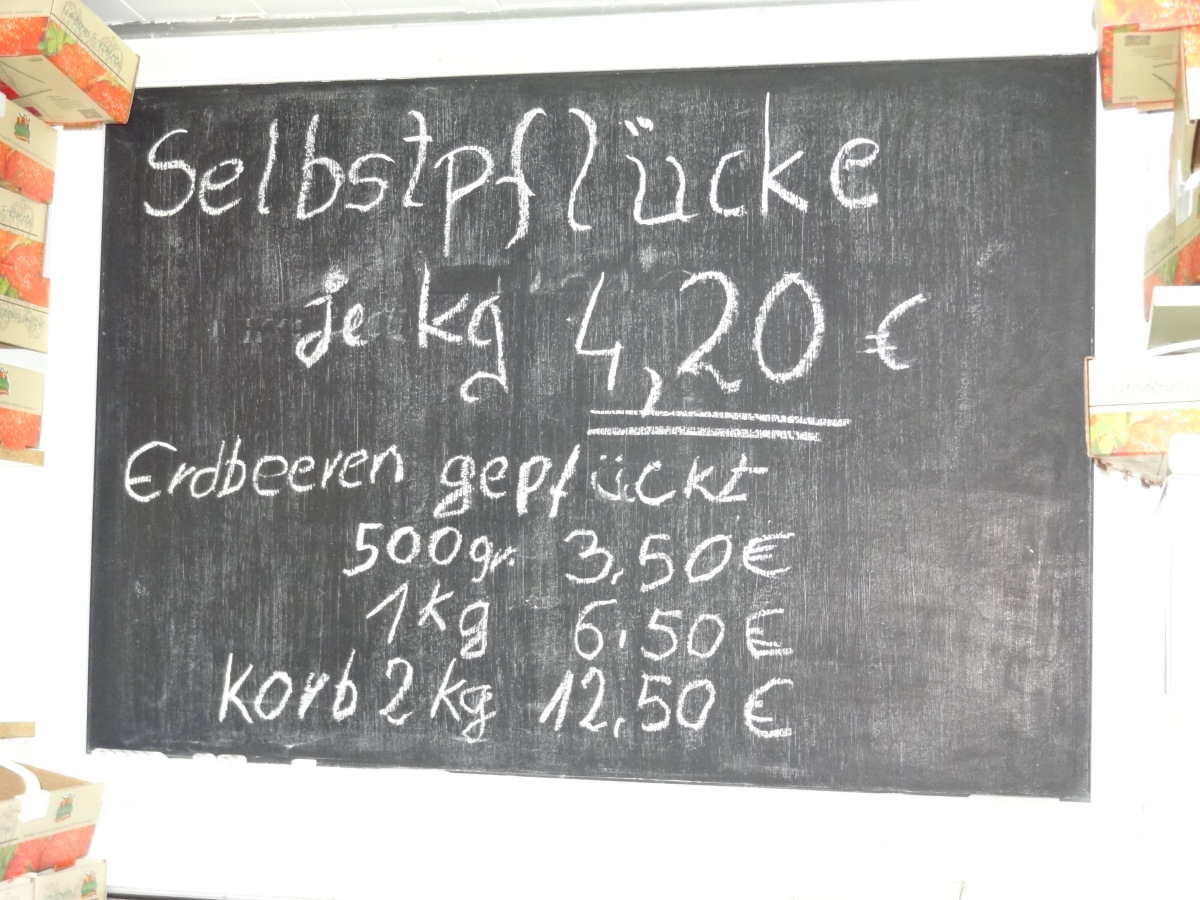 Selbstpflücke
je kg 4,20 €
Erdbeeren gepflückt
500gr. 3,50€
1kg 6,50€
Korb 2kg 12,50 €